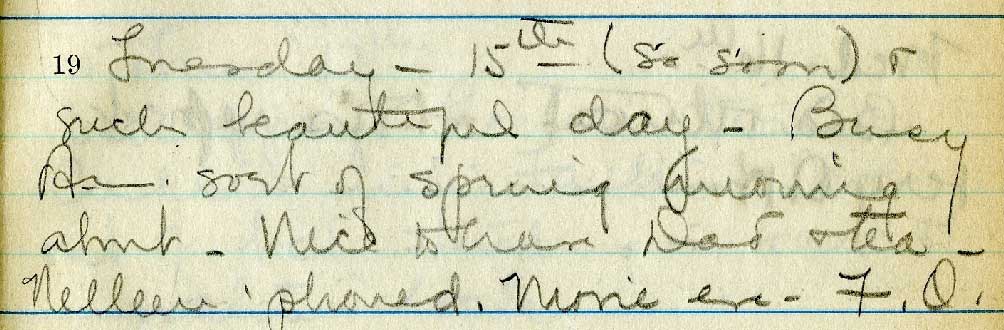 19 Tuesday - 15th (so soon) &
such beautiful day - Busy
sort of spring moving
about - Nice to have Dad & tea -
Nelleen 'phoned. Movie eve - F. O.